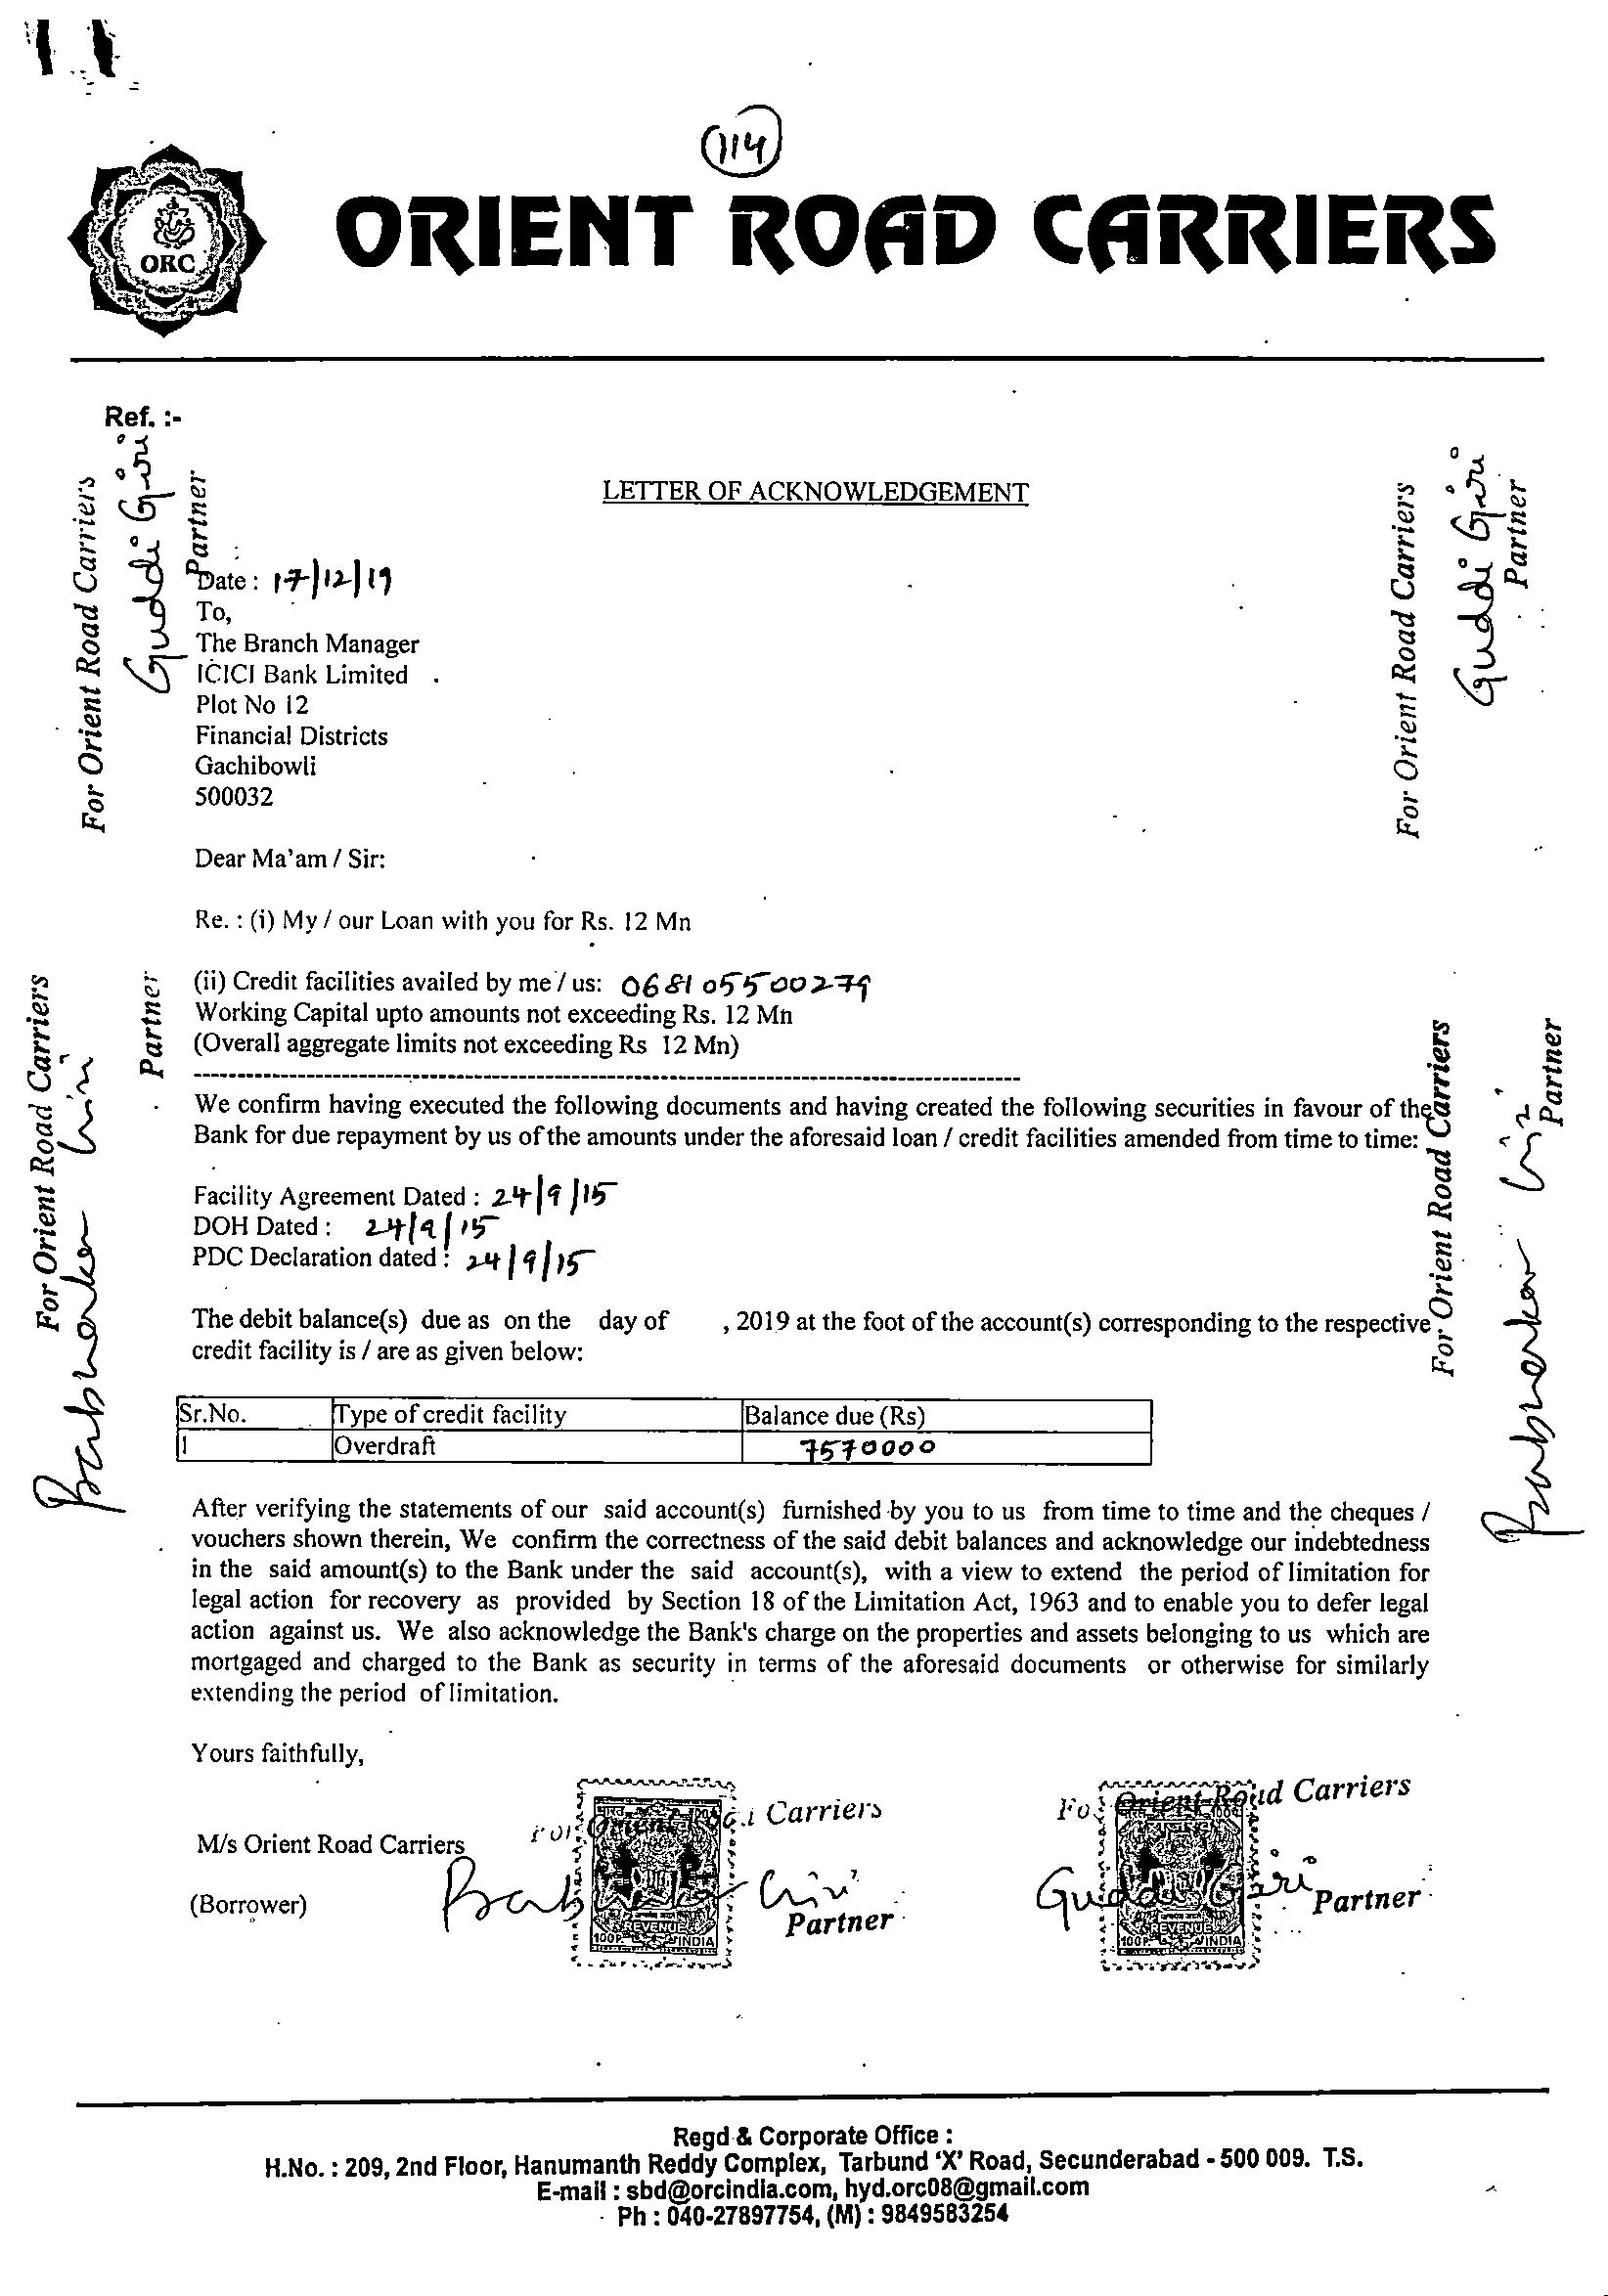 114
ORC
ORIENT ROAD CARRIERS
Ref. :-
For Orient Road Carriers
Guddi Giri
Partner
For Orient Road Carriers
Guddi Giri
Partner
LETTER OF ACKNOWLEDGEMENT
Date : 17/12/19
To,
The Branch Manager
ICICI Bank Limited
Plot No 12
Financial Districts
Gachibowli
500032
Dear Ma'am / Sir:
Re. : (i) My / our Loan with you for Rs. 12 Mn
(ii) Credit facilities availed by me / us: 068105500279
Working Capital upto amounts not exceeding Rs. 12 Mn
(Overall aggregate limits not exceeding Rs 12 Mn)
For Orient Road Carriers
Giri
Partner
For Orient Road Carriers
Giri
Partner
We confirm having executed the following documents and having created the following securities in favour of the
Bank for due repayment by us of the amounts under the aforesaid loan / credit facilities amended from time to time:
Facility Agreement Dated : 24/9/15
DOH Dated : 24/9/15
PDC Declaration dated : 24/9/15
The debit balance(s) due as on the day of , 2019 at the foot of the account(s) corresponding to the respective
credit facility is / are as given below:
Sr.No. Type of credit facility Balance due (Rs)
1 Overdraft 7570000
After verifying the statements of our said account(s) furnished by you to us from time to time and the cheques /
vouchers shown therein, We confirm the correctness of the said debit balances and acknowledge our indebtedness
in the said amount(s) to the Bank under the said account(s), with a view to extend the period of limitation for
legal action for recovery as provided by Section 18 of the Limitation Act, 1963 and to enable you to defer legal
action against us. We also acknowledge the Bank's charge on the properties and assets belonging to us which are
mortgaged and charged to the Bank as security in terms of the aforesaid documents or otherwise for similarly
extending the period of limitation.
Yours faithfully,
For Orient Road Carriers
For Orient Road Carriers
M/s Orient Road Carriers
(Borrower)
Giri
Partner
Guddi Giri
Partner
REVENUE
100P. INDIA
REVENUE
100P. INDIA
Regd & Corporate Office :
H.No. : 209, 2nd Floor, Hanumanth Reddy Complex, Tarbund 'X' Road, Secunderabad - 500 009. T.S.
E-mail : sbd@orcindia.com, hyd.orc08@gmail.com
Ph : 040-27897754, (M) : 9849583254